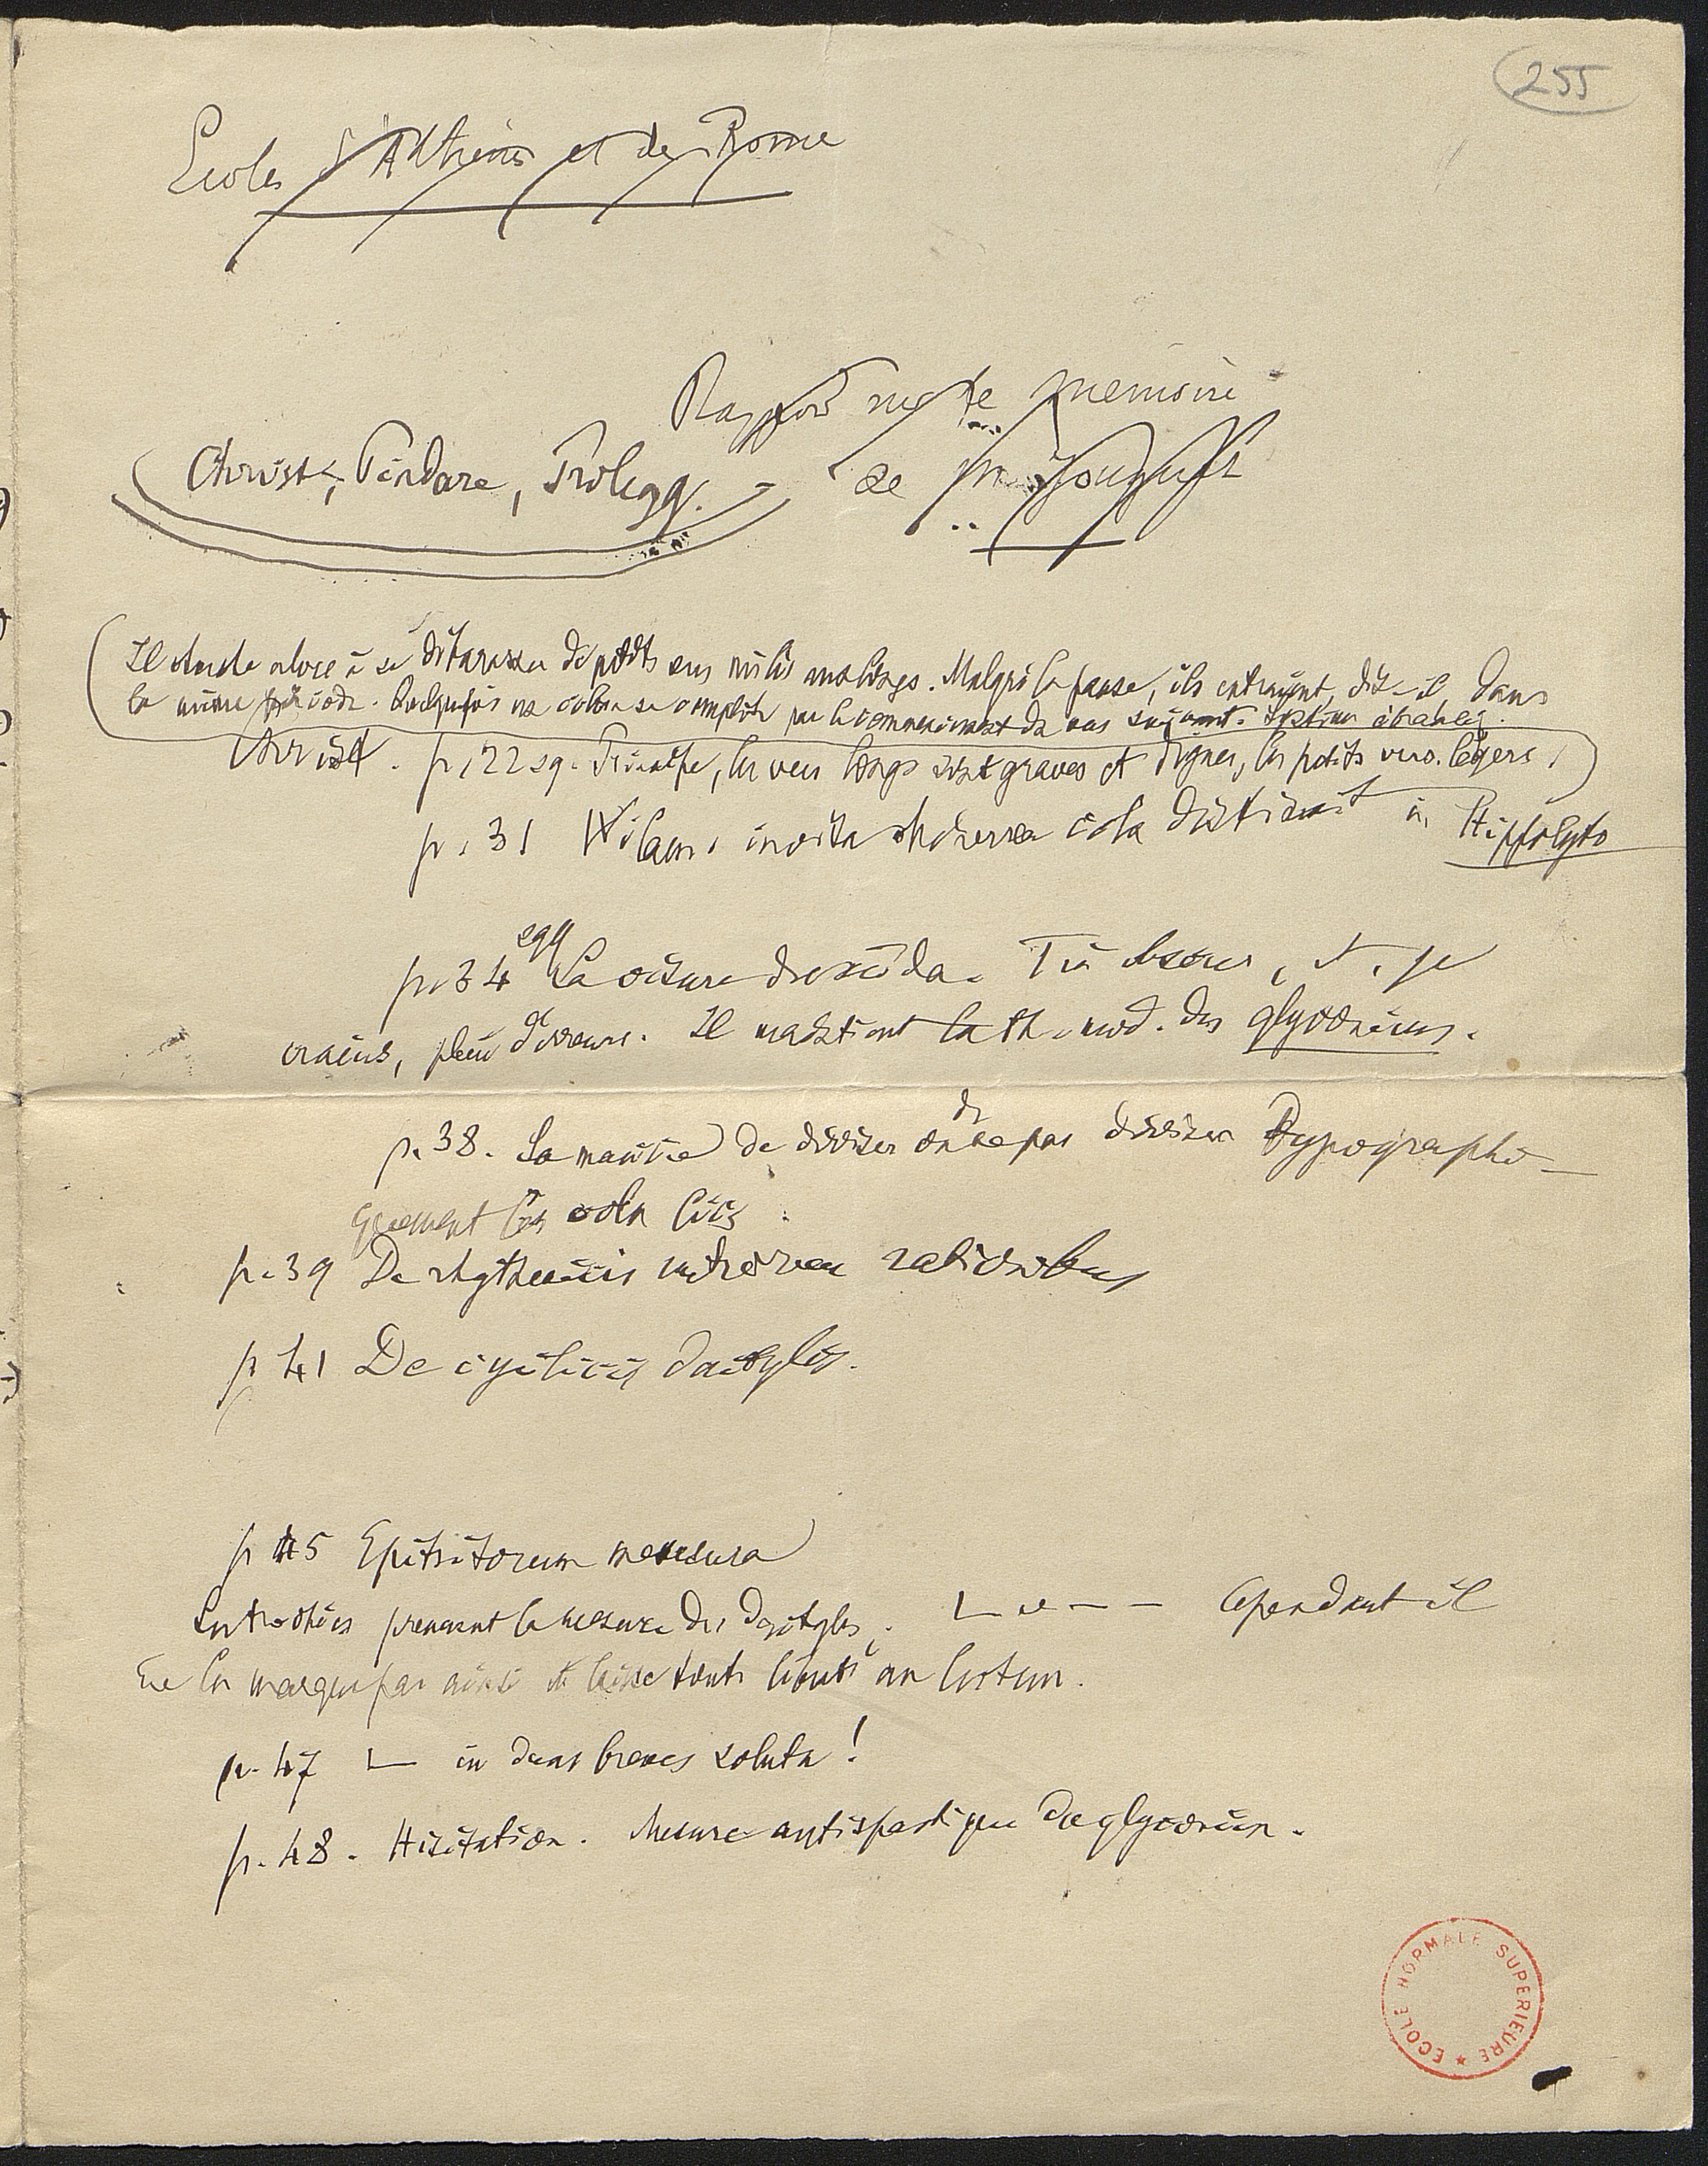 255
Ecoles d'Athènes et de Rome
Rapport sur le mémoire
Christ, Pindare, Prolegg.
de
Il cherche alors à se débarasser de petits vers mêlés aux longs. Malgré la pause, ils entraient, dit-il dans
la même période. Quelquefois un côlon se complète par le commencement du vers suivant.
Christ. p. 22 sq. Principe, les vers longs sont graves et dignes, les petits vers légers.
p. 31 Wilam. invita Minerva cola distinxit in Hippolyto
p. 34 sqq La césure dans côla. Très obscur, et, je
crains, plein d'erreurs. Il maintient la th. mod. des glyconiens.
p. 38. Sa manière de diviser ou de ne pas diviser typographi-
quement les cola liés.
p. 39 De rhythmicis metrorum rationibus
p 41 De cyclicis dactylis.
p 45 Epitritorum mensura
Les trochées prennent la mesure des dactyles. ∟ ᴗ – – Cependant il
ne les marque pas ainsi et laisse toute liberté au lecteur.
p. 47 ∟ in duas breves soluta !
p. 48. Hésitation. Mesure antispastique du glyconien.
ECOLE NORMALE SUPERIEURE